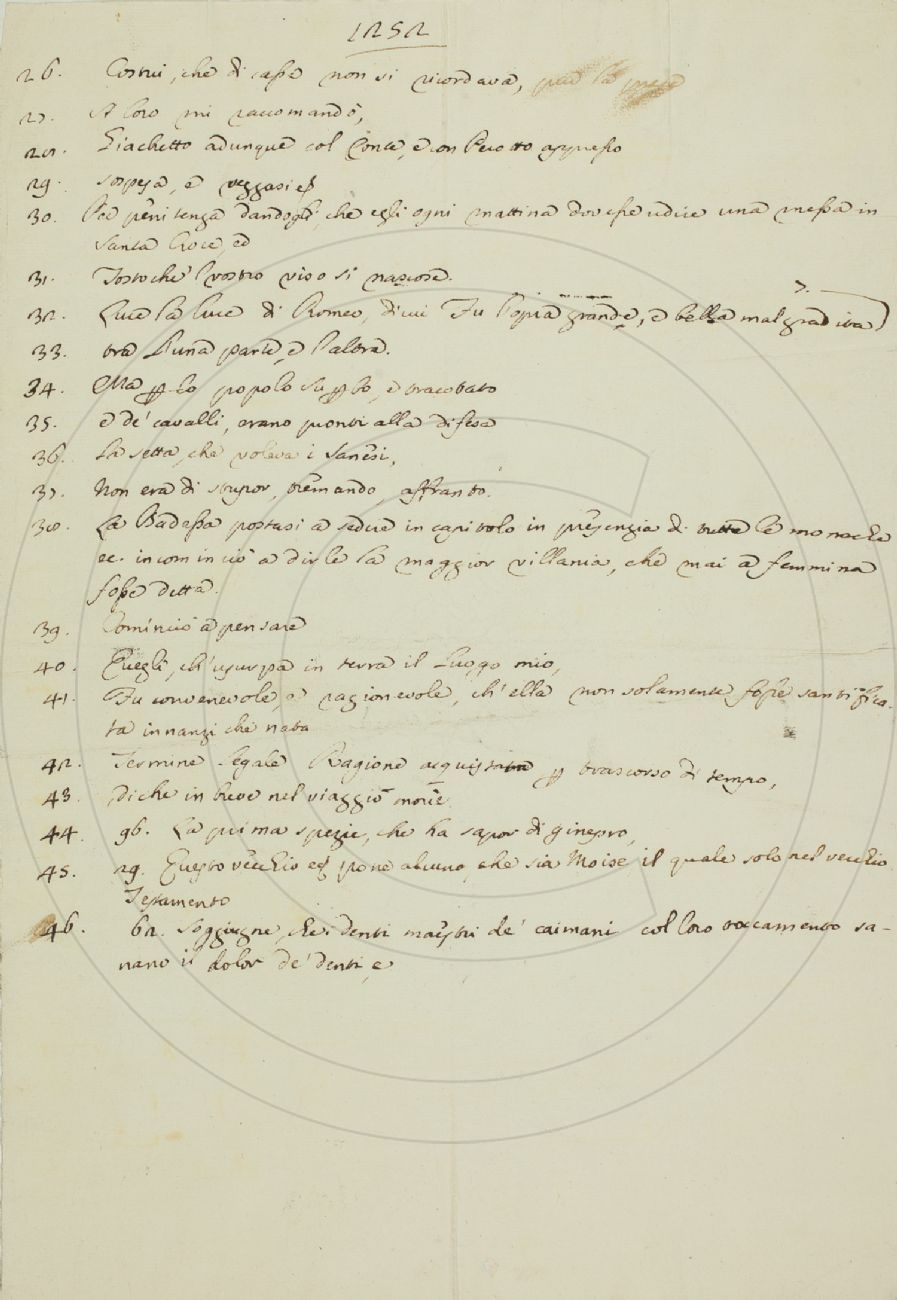 1252
26. Costui, che di casse non si ricordava, può la
27. A loro mi raccomandò,
28. Giachetto adunque col Conte, e con Perotto appresso
29. sospesa, e veggasi
30. Per penitenza dandogli, che egli ogni mattina dovesse udire una messa in
Santa Croce, ed
31. Tostochè 'l vostro viso si nascose.
32. Luce la luce di Romeo, di cui Fu l'opra grande, e bella mal gradita
33. tra l'una parte, e l'altra.
34. Ma p lo popolo e tracotato
35. e de' cavalli, erano pronti alla difesa
36. La setta, che voleva i Sanesi,
37. Non era di stupor, tremando, affranto.
38. La Badessa postasi a sedere in capitolo in presenzia di tutte le monache
ec. incominciò a dirle la maggior villania, che mai a femmina
fosse detta.
39. Cominciò a pensare
40. Quegli, ch'usurpa in terra il Luogo mio,
41. Fu convenevole, e ragionevole, ch'ella non solamente fosse santifica-
ta innanzi che nata
42. Termine legale Ragione acquistata p trascorso di tempo,
43. di che in breve nel viaggio morie
44. 96. La prima spezie, che ha sapor di ginepro,
45. 29. Questo vecchio pone alcuno, che sia Moise il quale solo nel vecchio
Testamento
46. 62. Soggiugne, che i denti maestri de' caimani col loro toccamento sa-
nano il dolor de' denti, e